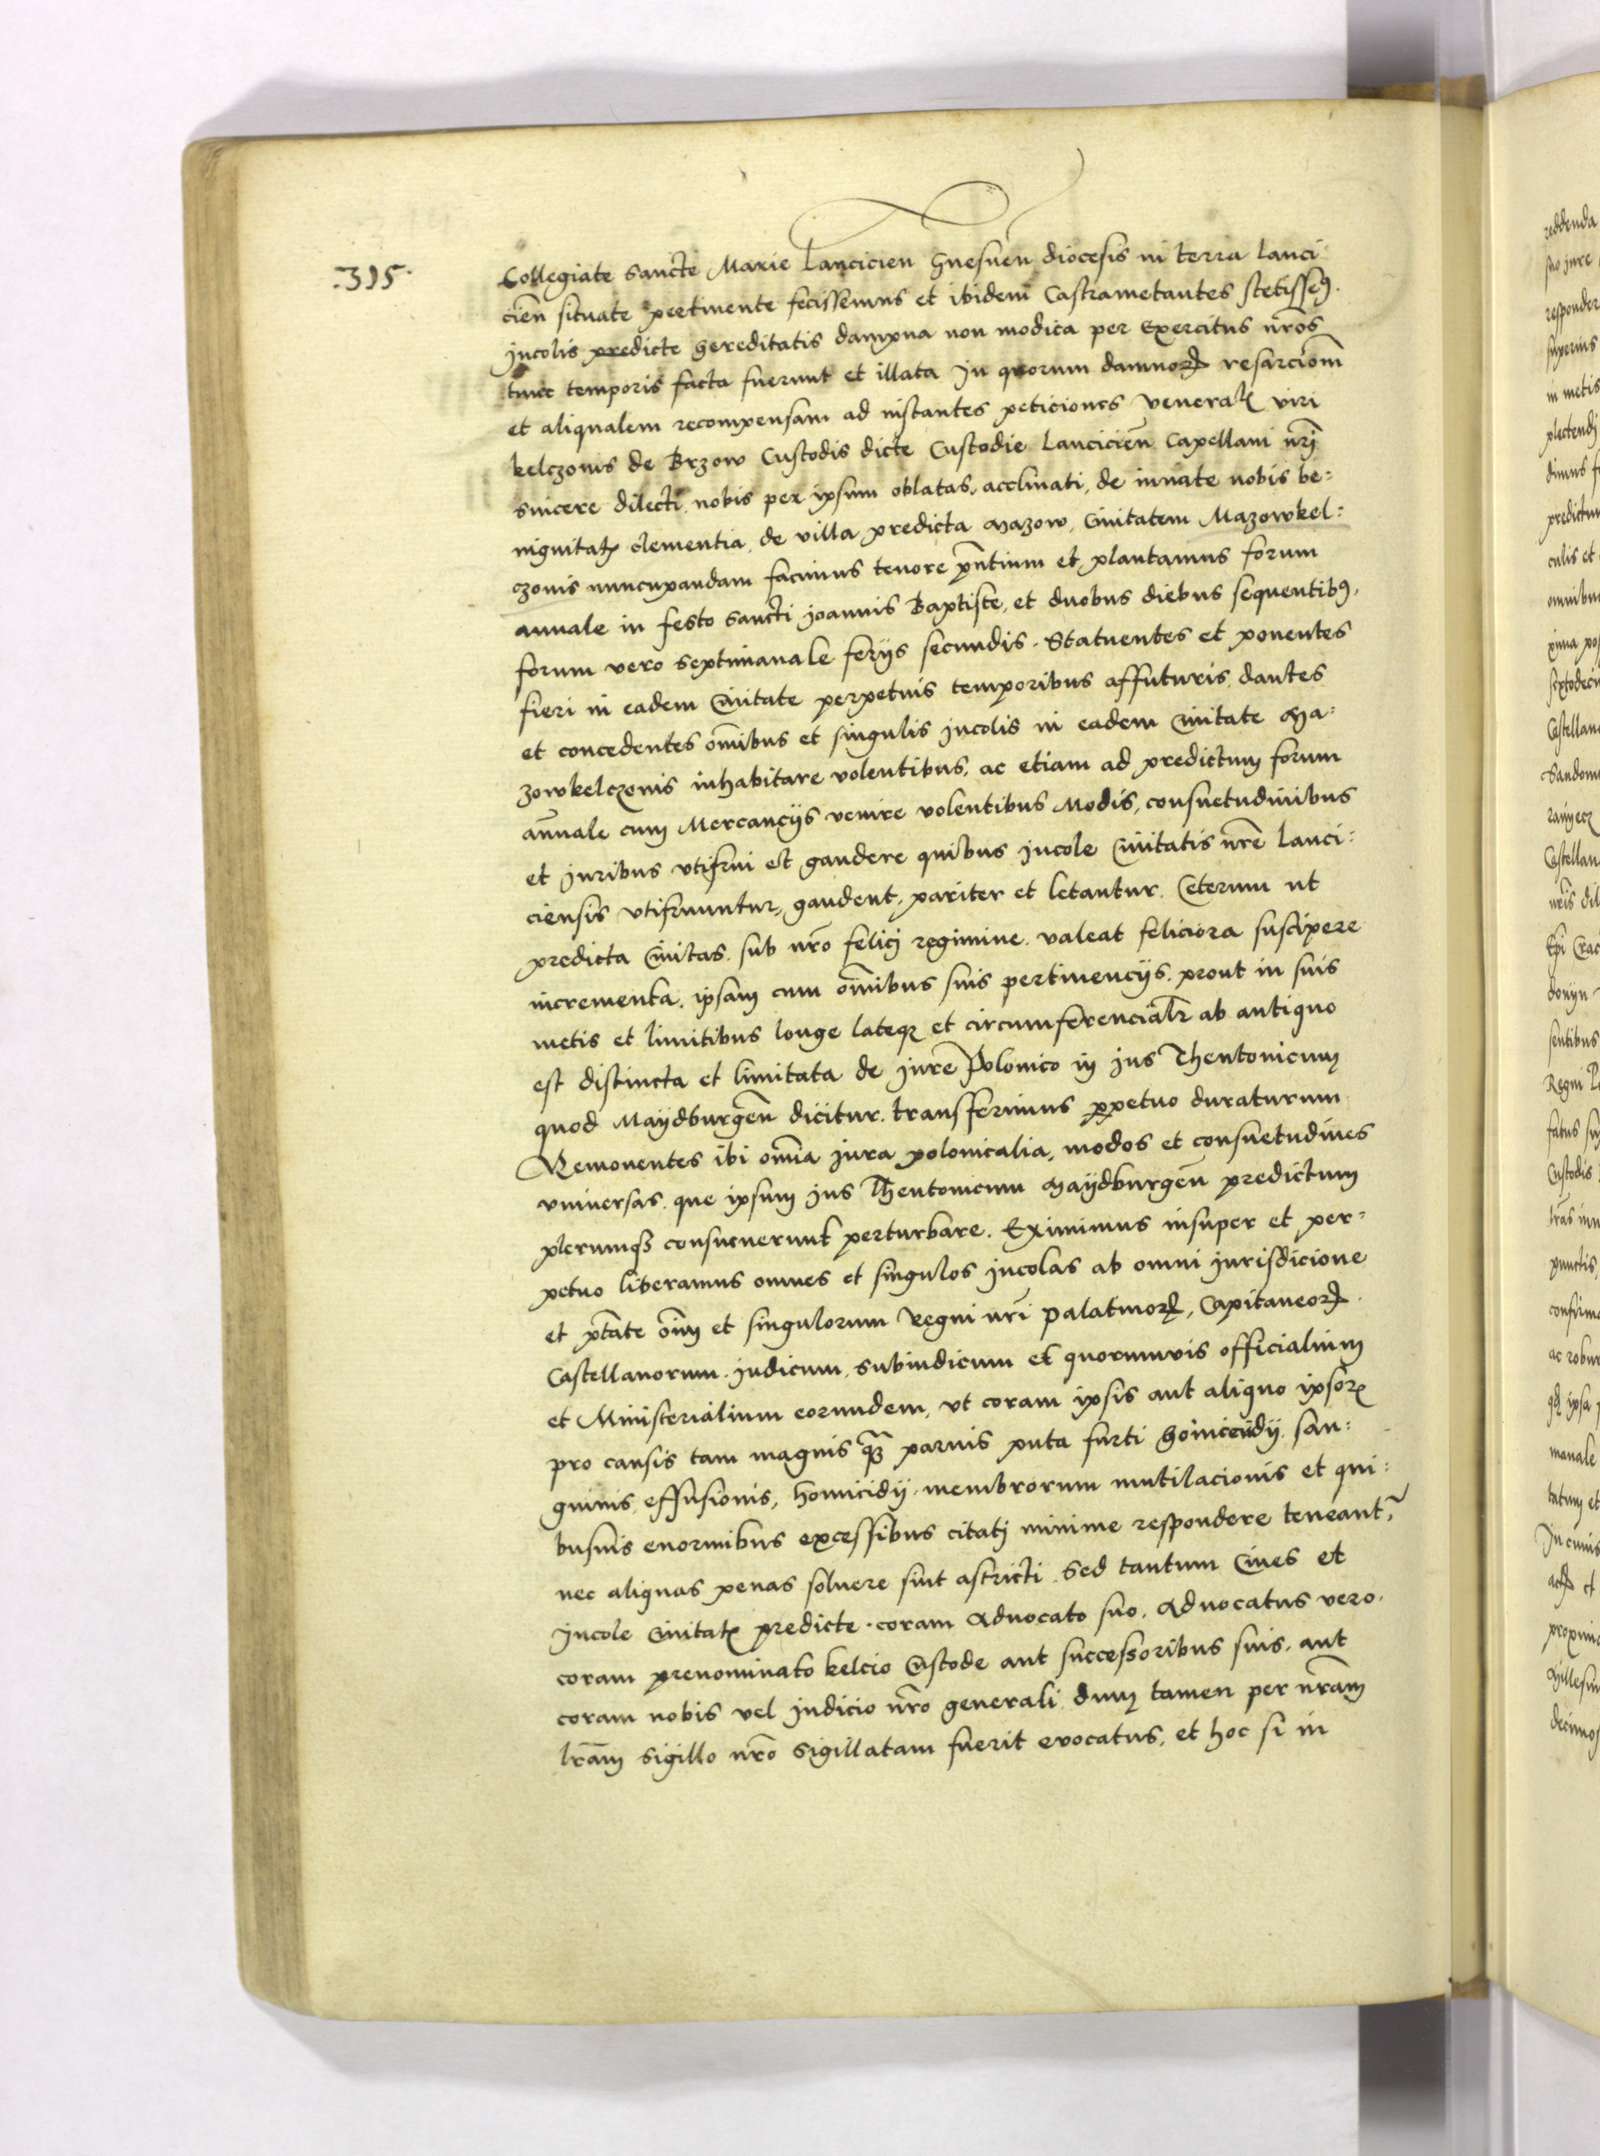 .315.
Collegiate Sancte Marie Lancicien Gnesnen̄ diocesis in terra Lanci
cien̄ situate pertinente fecissemus et ibidem Castrametantes stetissemꝰ.
Incolis predicte hereditatis dampna non modica per Exercitus nr̄os
tunc temporis facta fuerunt et illata In quorum damnoꝝ resarciom̄
et aliqualem recompensam ad instantes peticiones Venerał viri
kelczonis de Brzow Custodis dicte Custodie Lancicien̄ Capellani nr̄i
sincere dilecti, nobis per ipsum oblatas, acclinati, de innate nobis be=
nignitatꝭ clementia, de villa predicta Mazow, Civitatem Mazowkel=
czonis nuncupandam facimus tenore pn̄tium et plantamus forum
annale in festo Sancti Joannis Baptiste, et duobus diebus sequentibꝰ,
forum vero septimanale ferijs secundis. Statuentes et ponentes
fieri in eadem Civitate perpetuis temporibus affuturis, dantes
et concedentes om̄ibus et singulis Incolis in eadem Civitate Ma=
zowkelczonis inhabitare volentibus, ac etiam ad predictum forum
an̄uale cum Mercancijs venire volentibus Modis, consuetudinibus
et Juribus utifrui et gaudere quibus Incole Civitatis nr̄e Lanci=
ciensis utifruuntur, gaudent, pariter et letantur. Ceterum ut
predicta Civitas, sub nr̄o felici regimine, valeat feliciora suscipere
incrementa, ipsam cum om̄ibus suis pertinencijs, prout in suis
metis et limitibus longe lateqꝫ et circumferencialr̄ ab antiquo
est distincta et limitata de Jure Polonico in Jus Theutonicum
quod Maydburgen̄ dicitur, transferimus ꝑpetuo duraturum
Removentes ibi om̄ia Jura polonicalia, modos et consuetudines
universas, que ipsum Jus Theutonicum Maydburgen̄ predictum
plerumqꝫ consueuerunt perturbare. Eximimus insuper et per=
petuo liberamus omnes et singulos Incolas ab omni Jurisdicione
et ptāte oīm et singulorum Regni nr̄i Palatinoꝝ, Capitaneoꝝ.
Castellanorum. Judicum. Subiudicum et quorumvis officialium
et Ministerialium eorundem, ut coram ipsis aut aliquo ipsoꝝ
pro causis tam magnis qꝫ parvis puta furti homicendij, san=
guinis, effusionis, homicidij, membrorum mutilacionis et qui=
busvis enormibus excessibus citati minime respondere teneant᷑,
nec aliquas penas solvere sint astricti. Sed tantum Cives et
Incole Civitatꝭ predicte. coram Advocato suo. Advocatus vero.
coram prenominato kelcio Custode aut successoribus suis, aut
coram nobis vel Judicio nr̄o generali dum tamen per nr̄am
lr̄am sigillo nr̄o sigillatam fuerit evocatus, et hoc si in